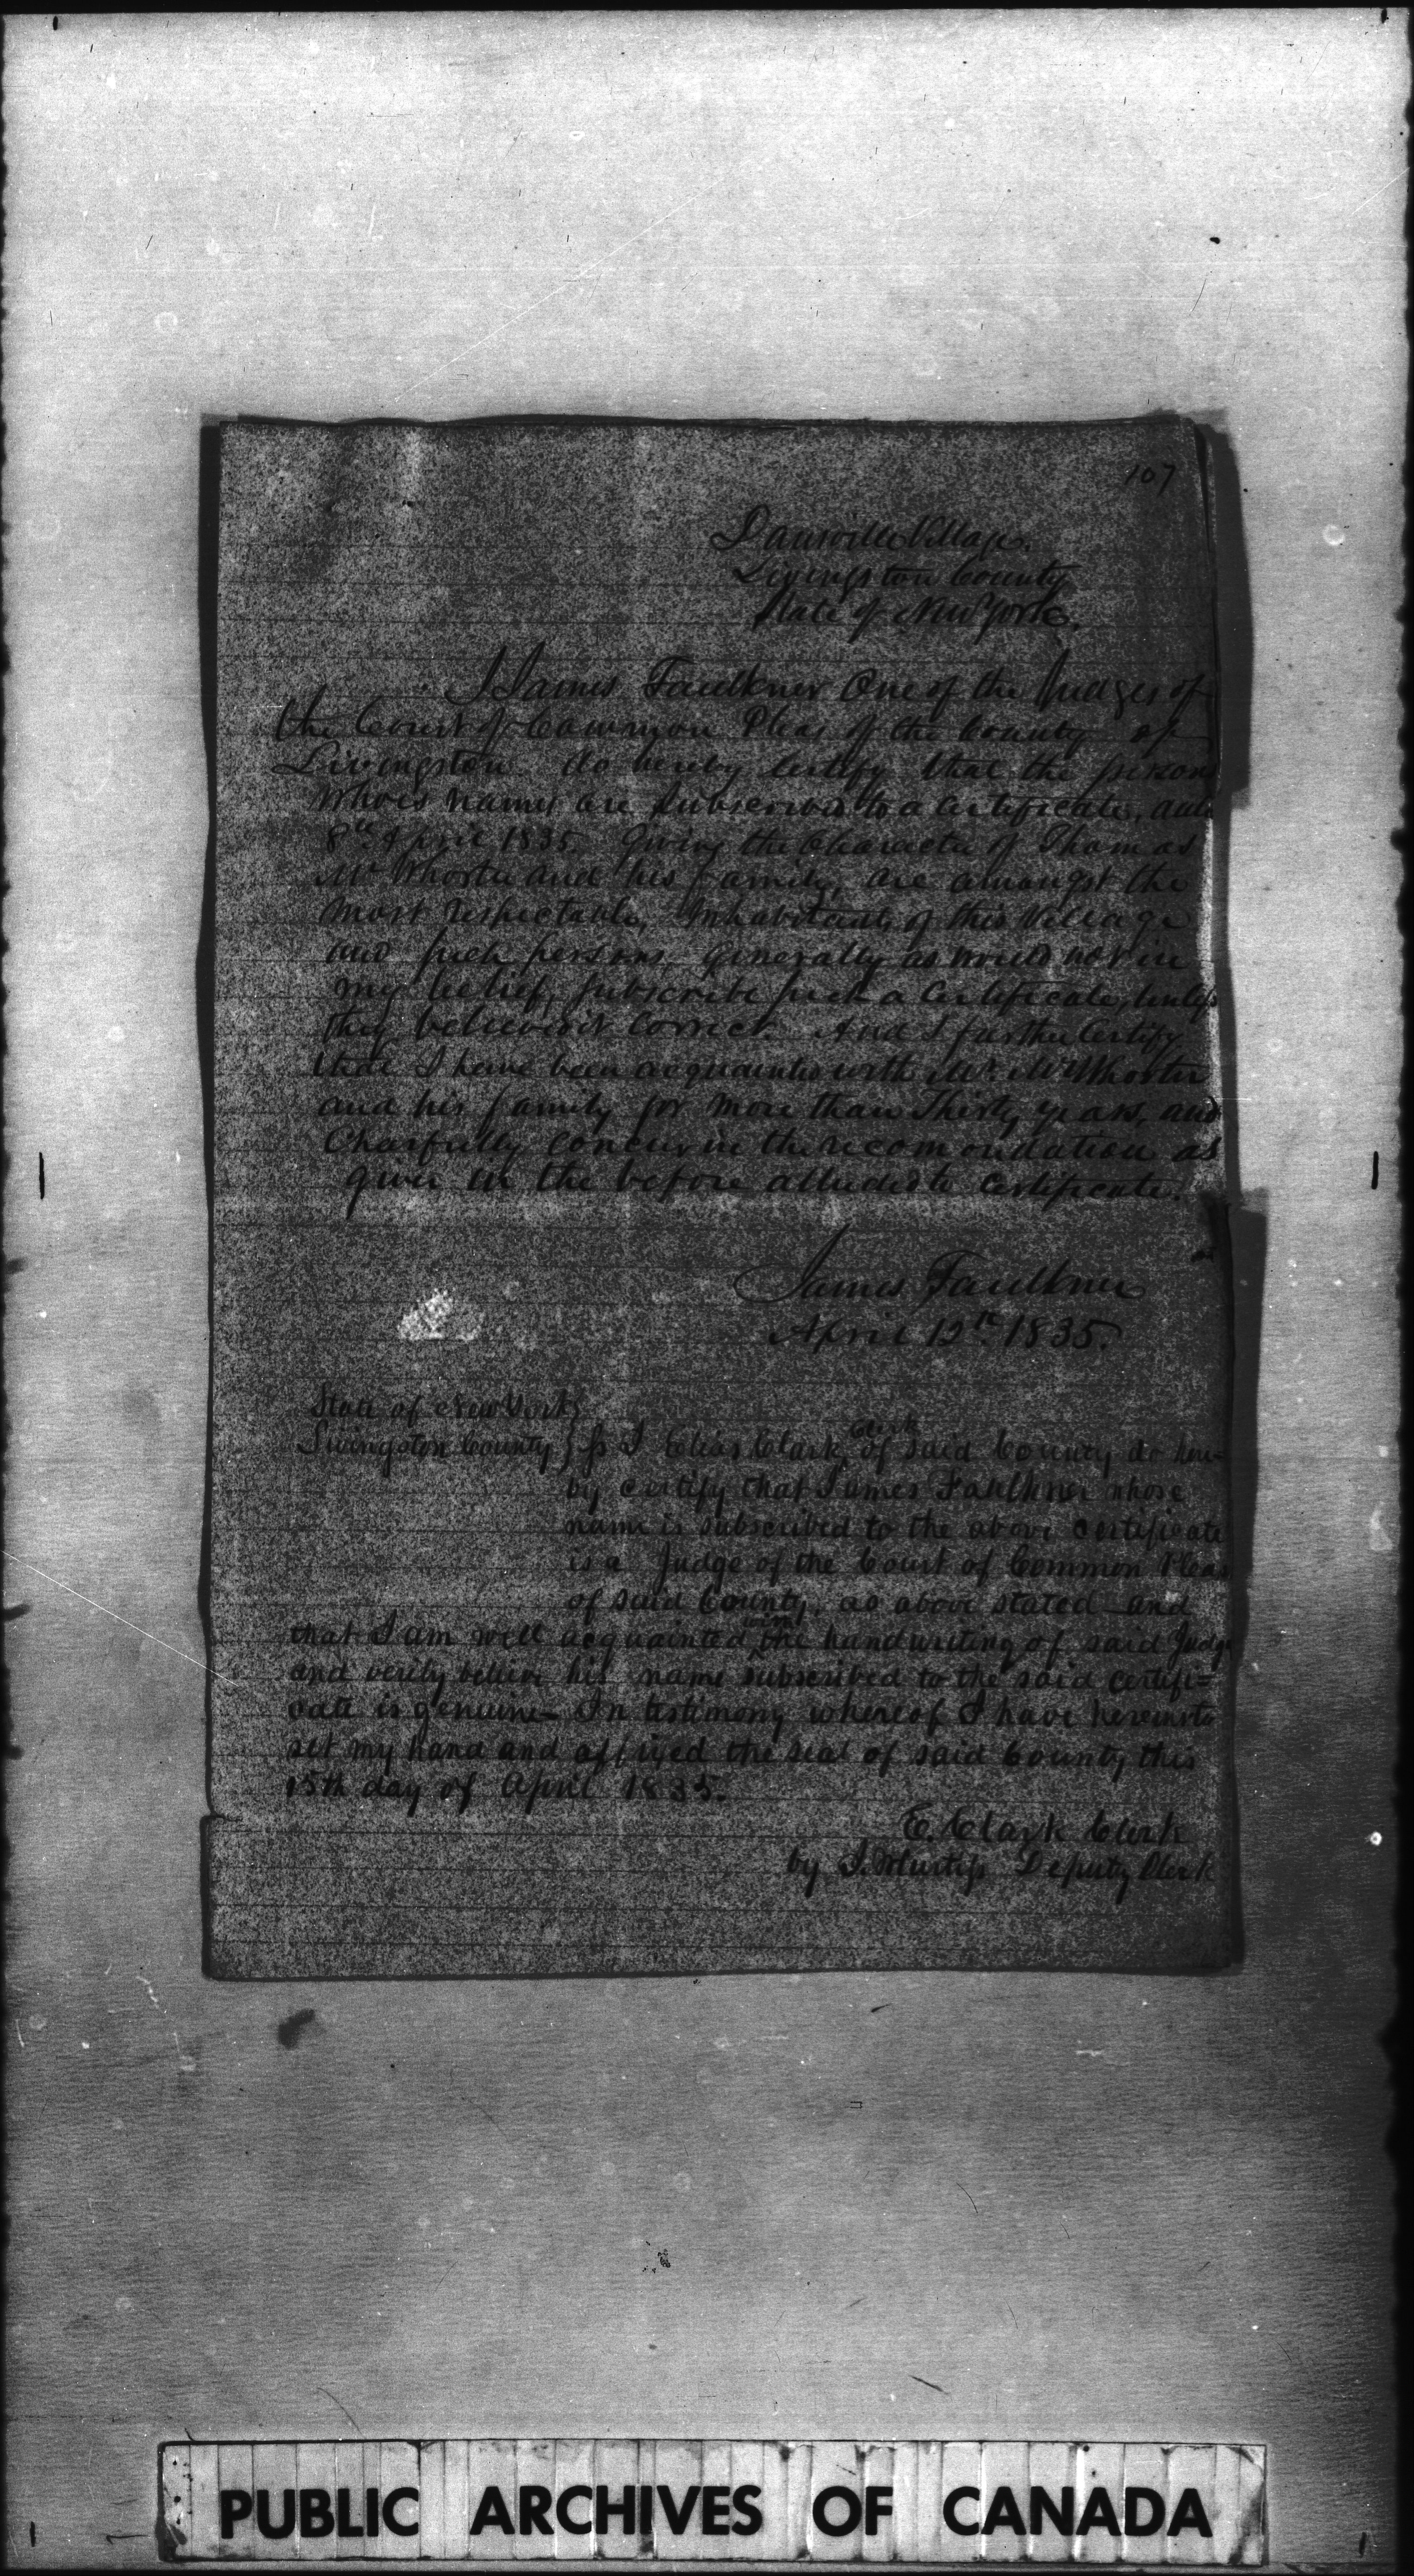 107
Dansville Village.
Livingston County
State of New York.
I James Faulkner One of the Judges of
the Court of Common Pleas of the County of
Livingston do hereby Certify that the persons
whoes names are subscribed to a Certificate, date
8th April 1835. Giving the Character of Thomas
McWhorter and his family, are amongst the
most respectable, Inhabitants of this Village
and such persons, generally as would not in
my belief, subscribe such a Certificate, unless
they believed it correct. And I further Certify
that I have been acquainted with Mr. McWhorter
and his family for more than Thirty years, and
Chearfully concur in the recomondation as
given in the before alluded to Certificate.
James Faulkner
April 12th 1835.
State of New York }
Livingston County } ss I Elias Clark Clerk of said County do here=
by certify that James Faulkner whose
name is subscribed to the above certificate
is a Judge of the Court of Common Pleas
of said County, as above stated and
that I am well acquainted with the handwriting of said Judge
and verily believe his name subscribed to the said certifi=
cate is genuine - In testimony whereof I have hereunto
set my hand and affixed the seal of said County this
15th day of April 1835.
E. Clark Clerk
by Deputy Clerk
PUBLIC ARCHIVES OF CANADA